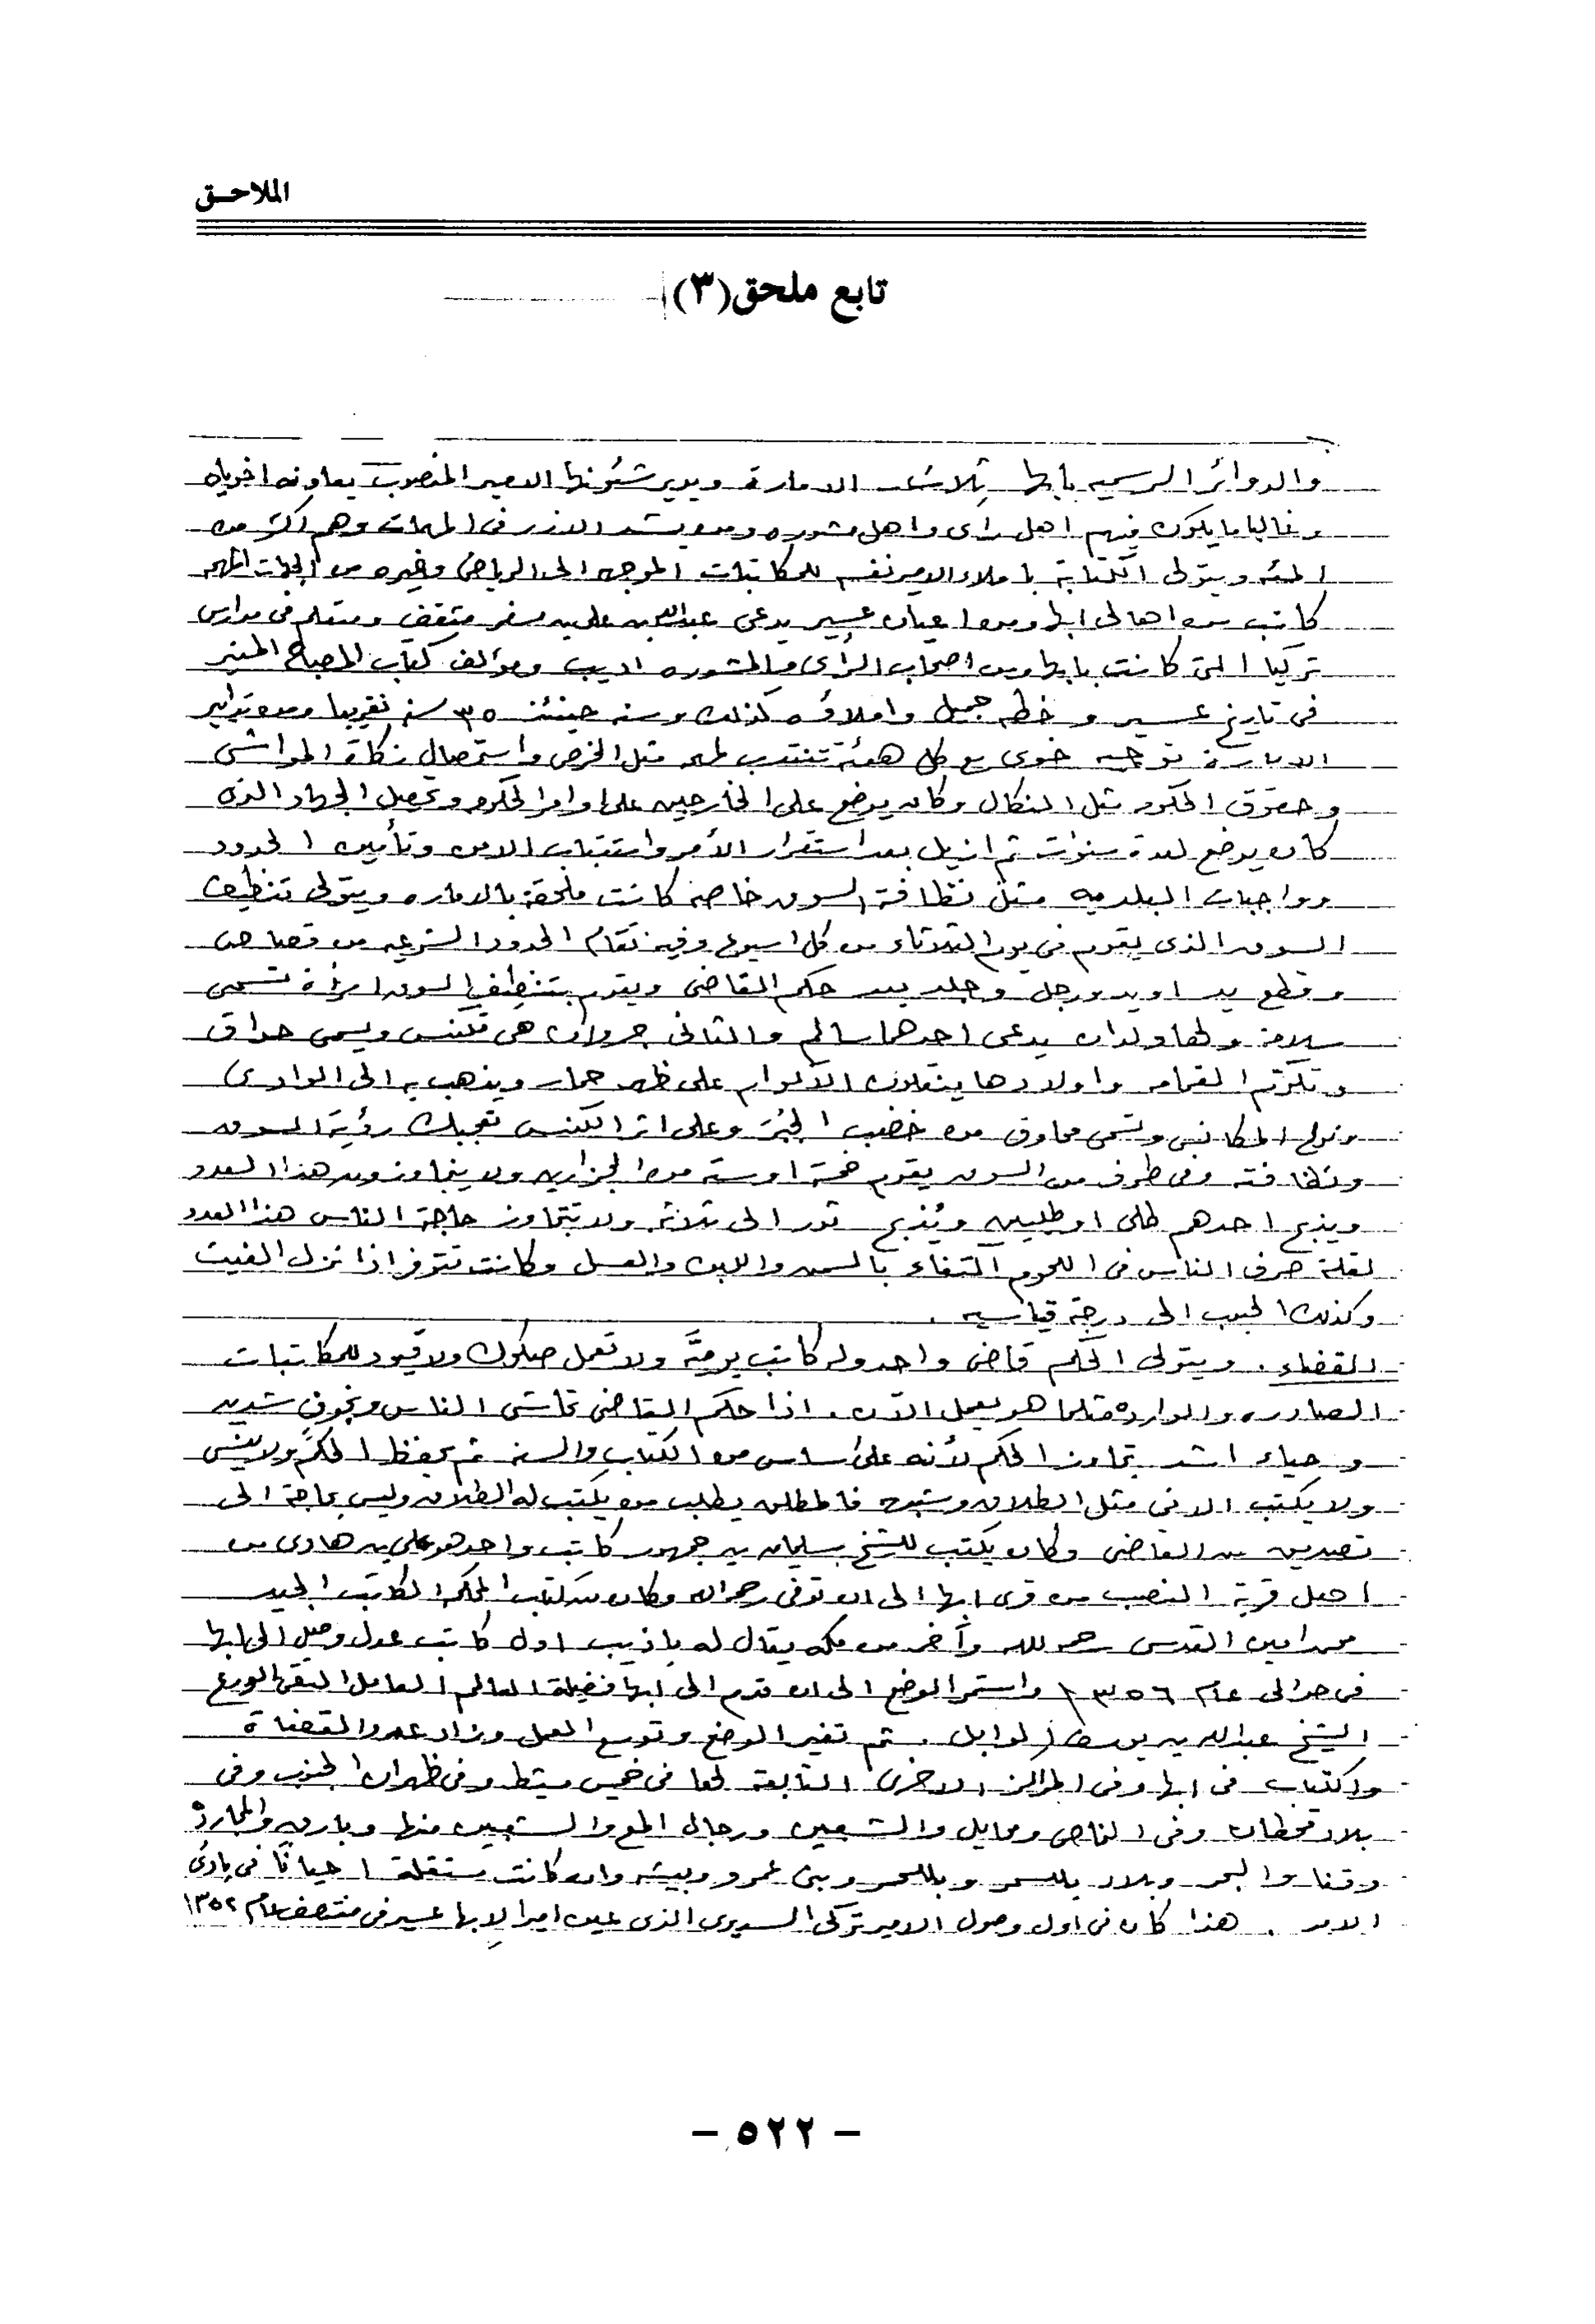 الملاحق
تابع ملحق (٣)
والدوائر الرسميه بابها ثلاث الامارة ويدير شئونها الامير المنصوب يعاونه اخوياه
وغالبا ما يكون فيهم اهل رأى واهل مشوره ومن يشد الازر فى المهمات وهم اكثر من
المئه ويتولى الكتابة باملاء الامير نفسه للمكاتبات الموجهه الى الرياض وغيره من الجهات المهمه
كاتب من اهالى ابها ومن اعيان عسير يدعى عبدالله بن على بن مسفر مثقف ومتعلم فى مدارس
تركيا التى كانت بابها ومن اصحاب الرأى والمشوره اديب ومؤلف كتاب المصباح المنير
فى تاريخ عسير وخطه جميل واملاؤه كذلك وسنه حينئذ ٣٥ سنه تقريبا ومن تدابير
الامارة توجيه خوى مع كل هيئة تنتدب لمهمه مثل الخرص واستحصال زكاة المواشى
وحقوق الحكومه مثل النكال وكان يوضع على الخارجين على اوامر الحكومه وتحصيل الجهاد الذى
كان يوضع لعدة سنوات ثم ازيل بعد استقرار الأمر واستتباب الامن وتأمين الحدود
وواجبات البلديه مثل نظافة السوق خاصه كانت ملحقة بالاماره ويتولى تنظيف
السوق الذى يقوم فى يوم الثلاثاء من كل اسبوع وفيه تقام الحدود الشرعيه من قصاص
وقطع يد او يد ورجل وجلد بعد حكم القاضى ويقوم بتنظيف السوق امرأة تسمى
سلامه ولها ولدان يدعى احدهما سالم والثانى جروان هى تكنس ويسمى حواق
وتكوّم القمامه واولادها ينقلون الاكوام على ظهر حمار ويذهب به الى الوادى
ونوع المكانس وتسمى محاوق من خضب الجبَر وعلى اثر الكنس تعجبك رؤية السوق
ونظافته وفى طرف من السوق يقوم خمسة او سته من الجزارين ولا يتجاوزون هذا العدد
ويذبح احدهم طلى او طليين ويُذبح ثور الى ثلاثه ولا تتجاوز حاجة الناس هذا العدد
لقلة صرف الناس فى اللحوم اكتفاء بالسمن واللبن والعسل وكانت تتوفر اذا نزل الغيث
وكذلك الحبوب الى درجة قياسيه .
القضاء . ويتولى الحكم قاضى واحد وله كاتب يوميّة ولا تعمل صكوك ولا قيود للمكاتبات
الصادره والوارده مثلما هو يعمل الآن . اذا حكم القاضى تحاشى الناس وبخوف شديد
وحياء اشد تجاوز الحكم لأنه على اساس من الكتاب والسنه ثم يحفظ الحكم ولا ينسى
ولا يكتب الا فى مثل الطلاق وشبهه فالمطلق يطلب من يكتب له الطلاق وليس بحاجة الى
تصديق من القاضى وكان يكتب للشيخ سليمان بن جمهور كاتب واحد هو على بن هادى من
اهل قرية النصب من قرى ابها الى ان توفى رحمه الله وكان من كتاب المحكمه الكاتب الجيد
محمد امين القدسى رحمه الله وآخر من مكه يقال له باذيب اول كاتب عدل وصل الى ابها
فى حوالى عام ١٣٥٦ واستمر الوضع الى ان قدم الى ابها فضيلة العالم العامل التقى الورع
الشيخ عبدالله بن يوسف الوابل . ثم تغير الوضع وتوسع العمل وزاد عدد القضاة
والكتاب فى ابها وفى المراكز الاخرى التابعة لها فى خميس مشيط وفى ظهران الجنوب وفى
بلاد قحطان وفى النماص ومحايل والشعبين ورجال المع والشعبين منها وبارق والمجاردة
وقنا والبحر وبلاد بللسمر وبللحمر وبنى عمرو وبيشه وان كانت مستقلة احيانًا فى بادئ
الامر . هذا كان فى اول وصول الامير تركى السديرى الذى عين اميرا لابها عسير فى منتصف عام ١٣٥٢
– ٥٢٢ –